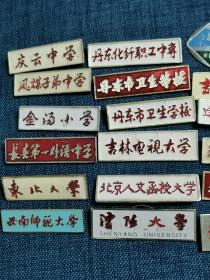 庆云中学
丹东化纤职工中专
凤煤子弟中学
丹东市卫生学校
金汤小学
丹东市卫生学校
长春第一外语中学
吉林电视大学
东北大学
北京人文函授大学
云南师范大学
沈阳大学
SHENYANG UNIVERSITY